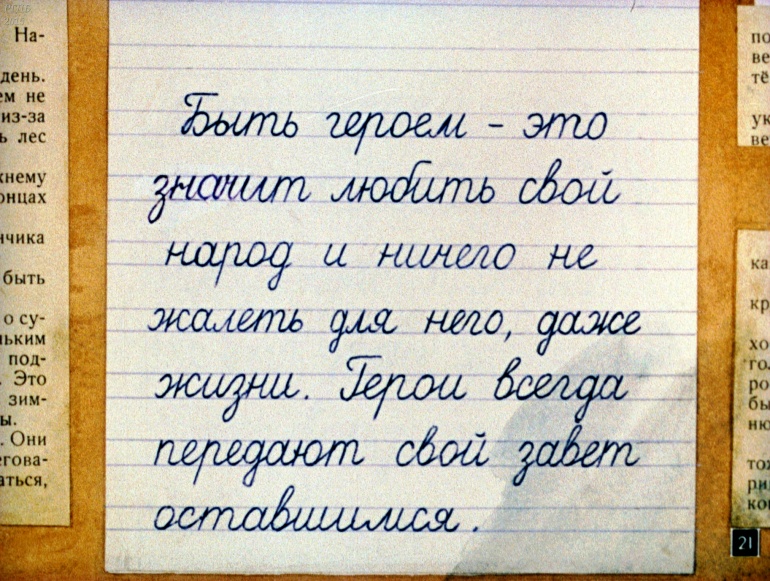 На-
день.
ем не
из-за
ь лес
жнему
онцах
нчика
быть
о су-
ньким
под-
. Это
зим-
ы.
. Они
егова-
аться,
Быть героем - это
значит любить свой
народ и ничего не
жалеть для него, даже
жизни. Герои всегда
передают свой завет
оставшимся.
по
ве
тё
ук
ве
ка
кр
хо
гол
ро
бы
ню
тож
ри
кон
21